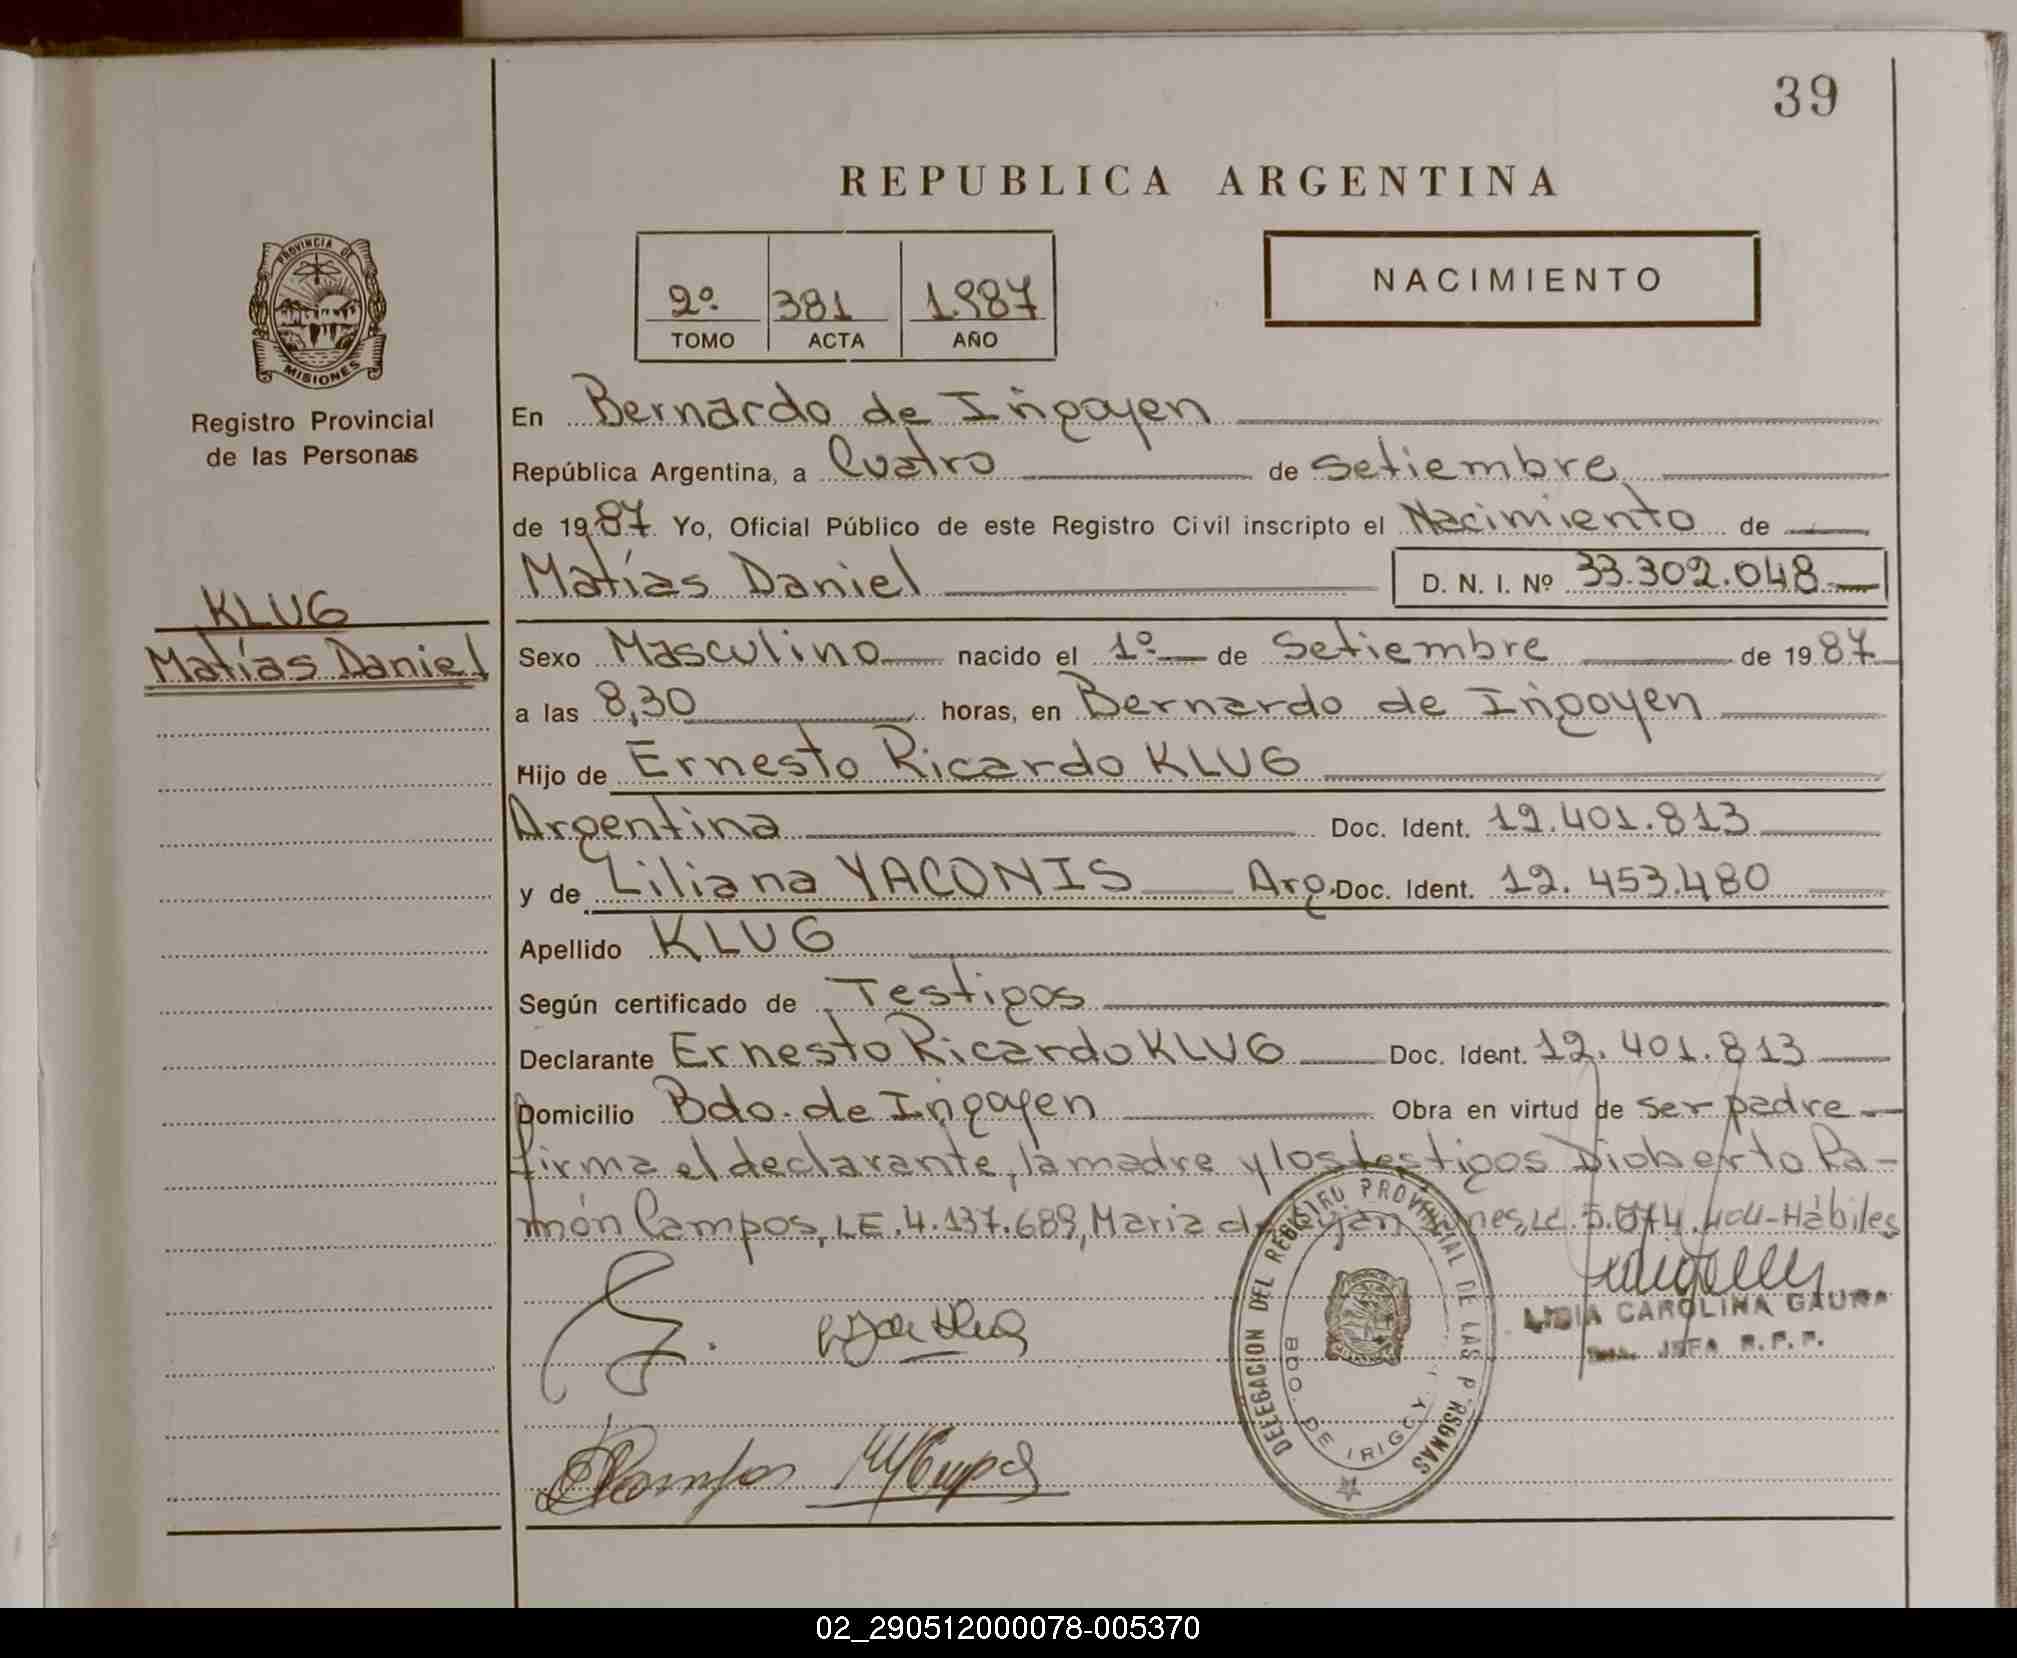 39
REPUBLICA ARGENTINA
PROVINCIA DE
MISIONES
Registro Provincial
de las Personas
2º 381 1.987
TOMO ACTA AÑO
NACIMIENTO
En Bernardo de Irigoyen
República Argentina, a Cuatro de Setiembre
de 1987 Yo, Oficial Público de este Registro Civil inscripto el Nacimiento de
Matías Daniel D. N. I. Nº 33.302.048
KLUG
Matías Daniel
Sexo Masculino nacido el 1º de Setiembre de 1987
a las 8,30 horas, en Bernardo de Irigoyen
Hijo de Ernesto Ricardo KLUG
Argentina Doc. Ident. 12.401.813
y de Liliana YACONIS Arg. Doc. Ident. 12.453.480
Apellido KLUG
Según certificado de Testigos
Declarante Ernesto Ricardo KLUG Doc. Ident. 12.401.813
Domicilio Bdo. de Irigoyen Obra en virtud de ser padre
firma el declarante, la madre y los testigos Dioberto Ra-
món Campos, LE. 4.137.689, Maria de -Hábiles
DELEGACION DEL REGISTRO PROVINCIAL DE LAS P RSONAS
BDO. DE IRIGOY
LIDIA CAROLINA GAUNA
JEFA R.P.P.
02_290512000078-005370